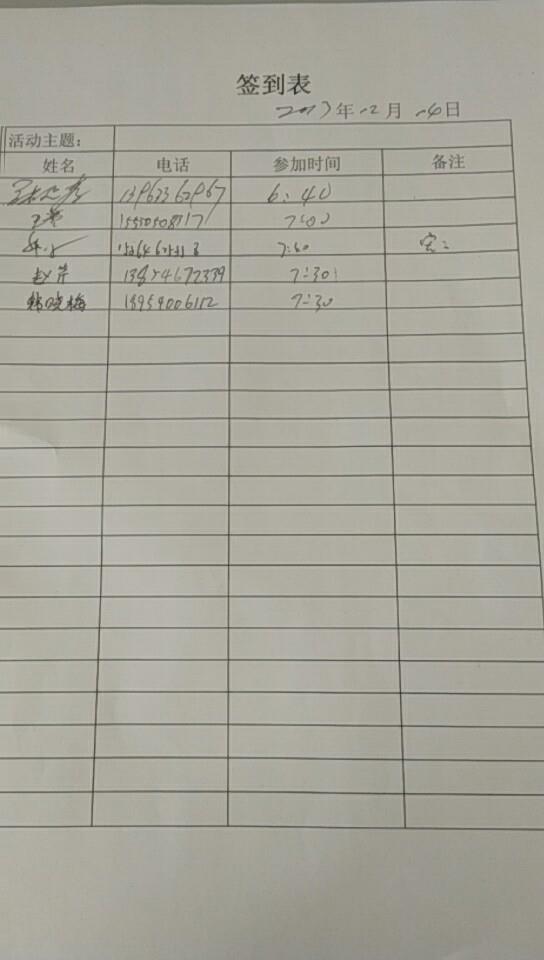 签到表
2017年12月16日
活动主题：
姓名 电话 参加时间 备注
13963362967 6:40
15550508717 7:00
7:30
赵芹 13854672339 7:30
韩晓梅 18954006112 7:30